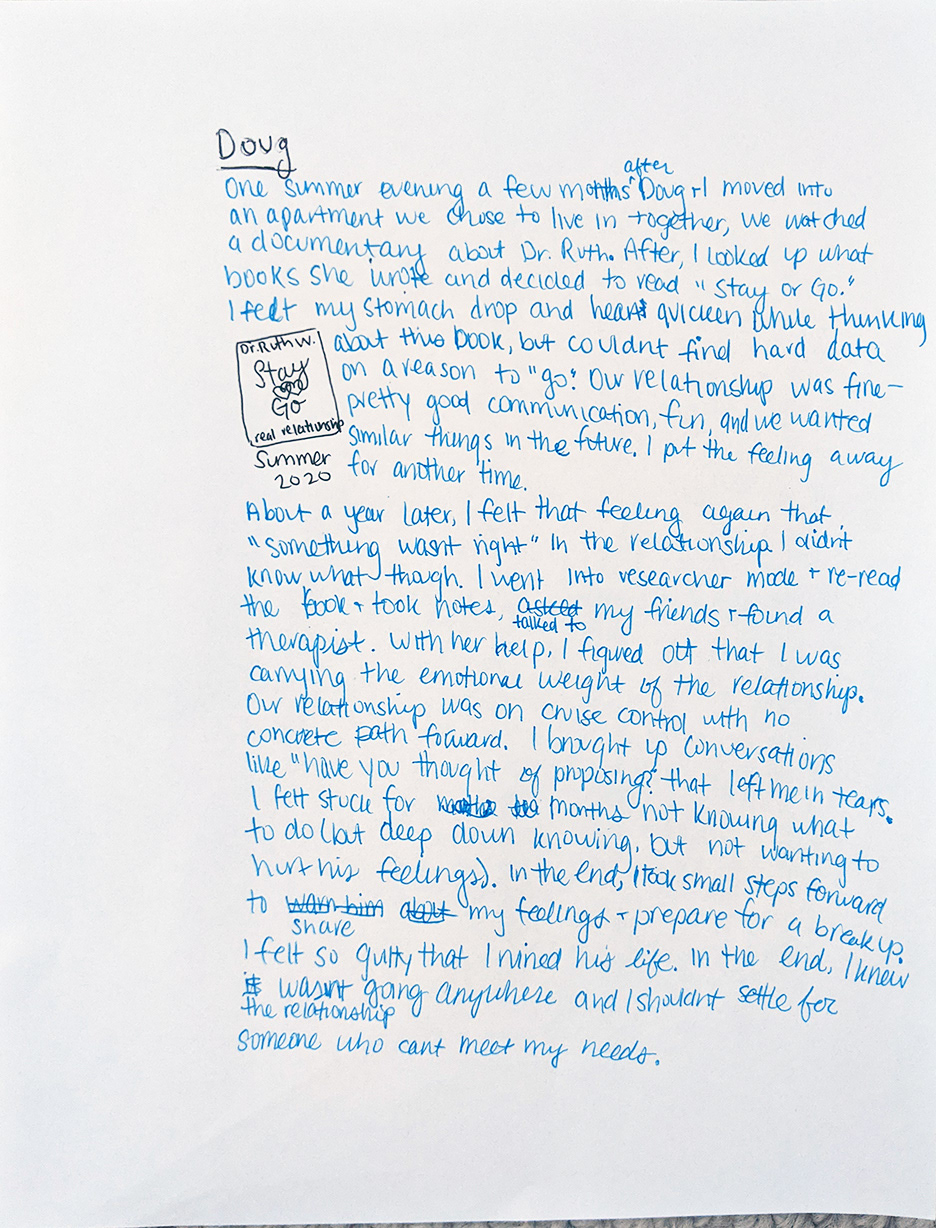 Doug
after
One summer evening a few months ^ Doug + I moved into
an apartment we chose to live in together, we watched
a documentary about Dr. Ruth. After, I looked up what
books she wrote and decided to read "Stay or Go."
I felt my stomach drop and heart quicken while thinking
about this book, but couldnt find hard data
on a reason to "go". Our relationship was fine—
pretty good communication, fun, and we wanted
similar things in the future. I put the feeling away
for another time.
Dr. Ruth W.
Stay
or
Go
real relationship
Summer
2020
About a year later, I felt that feeling again that
"something wasnt right" in the relationship. I didnt
know what though. I went into researcher mode + re-read
the book + took notes, asked my friends + found a
talked to
therapist. With her help, I figured out that I was
carrying the emotional weight of the relationship.
Our relationship was on cruise control with no
concrete path forward. I brought up conversations
like "have you thought of proposing?" that left me in tears.
I felt stuck for months not knowing what
to do (but deep down knowing, but not wanting to
hurt his feelings). In the end, I took small steps forward
to warn him about my feelings + prepare for a breakup.
share
I felt so guilty that I ruined his life. In the end, I knew
it wasnt going anywhere and I shouldnt settle for
the relationship
someone who cant meet my needs.